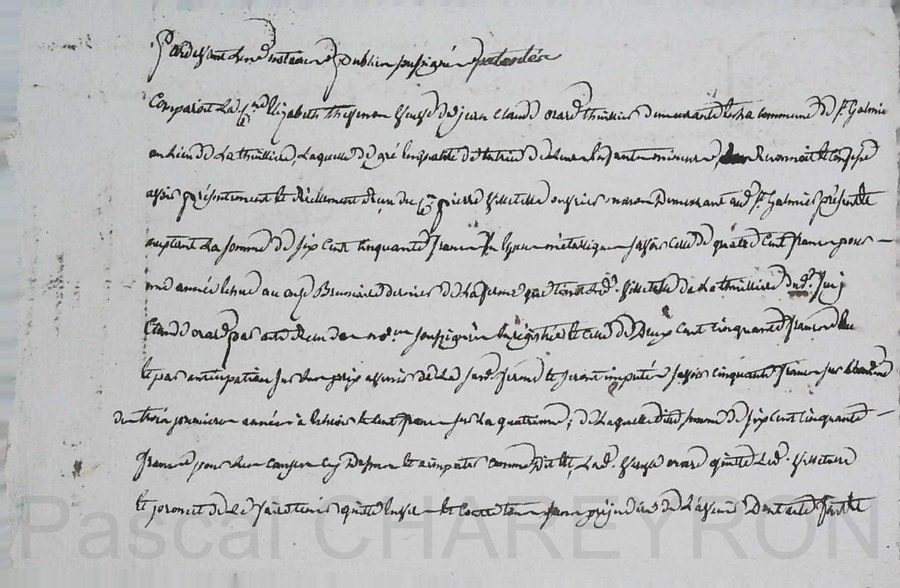 Pardevant le no.re public soussigné patenté
Comparoit La C.ne Elizabeth veuve de Jean Claude Orard thuillier demeurante en La Commune de S.t Galmier
au lieu de La thuillière, Laquelle de gré en qualité de tutrice de Leur enfant mineur, Reconnoit et confesse
avoir présentement et Réellement Reçu du C.en pierre Villetelle ouvrier maron Demeurant aud. S.t Galmier présent et
acceptant La somme de six Cent Cinquante francs En Espèces métalliques savoir Celle de quatre Cent francs pour
une année échue au onze Brumaire dernier de La ferme que tient Led. Villetelle de La thuillière dud. Jean
Claude Orard par acte Reçu de no.re soussigné enregistré et Celle de Deux Cent Cinquante francs
et par anticipation sur Le prix à venir de La sus.d ferme et seront imputés savoir Cinquante francs sur Chacune
des trois premières années à échoir et Cent francs sur La quatrième ; de Laquelle dite somme de six Cent Cinquante
francs pour Les Causes Cy Dessus et à imputer Comme Dit est, Lad. Veuve Orard quitte Led. Villetelle
et promet de Le faire tenir quitte Envers et Contre tous sans préjudice de L'avenir Dont acte fait et
Pascal CHAREYRON